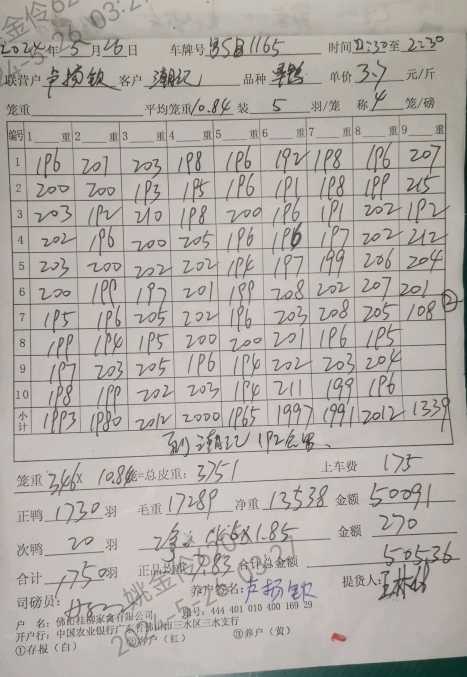 2024年5月26日 车牌号 时间 11:30至2:30
联营户 卢扬钦 客户 潮记 品种 单价 3.7 元/斤
笼重 平均笼重10.84 装 5 羽/笼 称 4 笼/磅
编号 1 重 2 重 3 重 4 重 5 重 6 重 7 重 8 重 9 重
1 196 207 203 198 196 192 198 196 207
2 200 200 193 195 196 191 198 199 215
3 203 192 210 198 200 196 191 202 192
4 202 196 200 205 196 196 197 202 212
5 203 200 202 202 194 197 199 206 204
6 200 199 197 201 199 208 202 207 201
7 195 196 205 202 196 203 208 205 108 ②
8 199 194 195 200 200 201 196 195
9 197 203 205 196 194 202 203 204
10 198 199 202 203 194 211 199 196
小计 1993 1980 2012 2000 1965 1997 1991 2012 1339
潮记 192
笼重 346×10.84笼=总皮重: 3751 上车费 175
正鸭 1730 羽 毛重 17289 净重 13538 金额 50091
次鸭 20 羽 ×1.85 金额 270
合计 1750 羽 正品均 7.83 合计总金额 50536
司磅员: 养户签名: 卢扬钦 提货人:
户 名: 佛山桂柳家禽有限公司 账号: 444 401 010 400 169 29
开户行: 中国农业银行广东省佛山市三水区三水支行
①存报(白) ②客户(红) ③养户(黄)